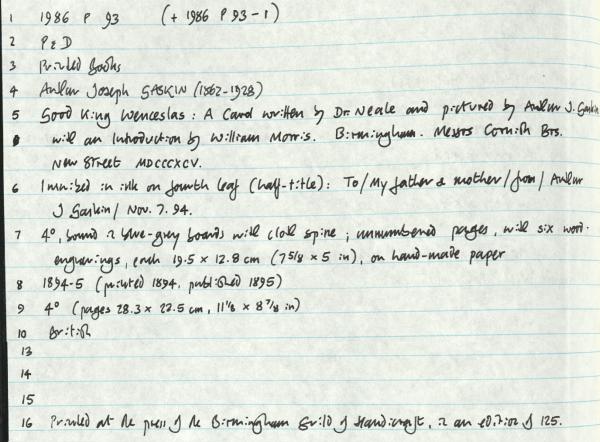 1 1986 P 93 (+ 1986 P 93-1)
2 P & D
3 Printed Books
4 Arthur Joseph GASKIN (1862-1928)
5 Good King Wenceslas : A Carol written by Dr. Neale and pictured by Arthur J. Gaskin
with an Introduction by William Morris. Birmingham. Messrs Cornish Bros.
New Street MDCCCXCV.
6 Inscribed in ink on fourth leaf (half-title): To/My father & mother/from/Arthur
J Gaskin/ Nov. 7. 94.
7 4°, bound in blue-grey boards with cloth spine ; unnumbered pages, with six wood-
engravings, each 19.5 x 12.8 cm (7 5/8 x 5 in), on hand-made paper
8 1894-5 (printed 1894, published 1895)
9 4° (pages 28.3 x 22.5 cm, 11 1/8 x 8 7/8 in)
10 British
13
14
15
16 Printed at the press of the Birmingham Guild of Handicraft, in an edition of 125.